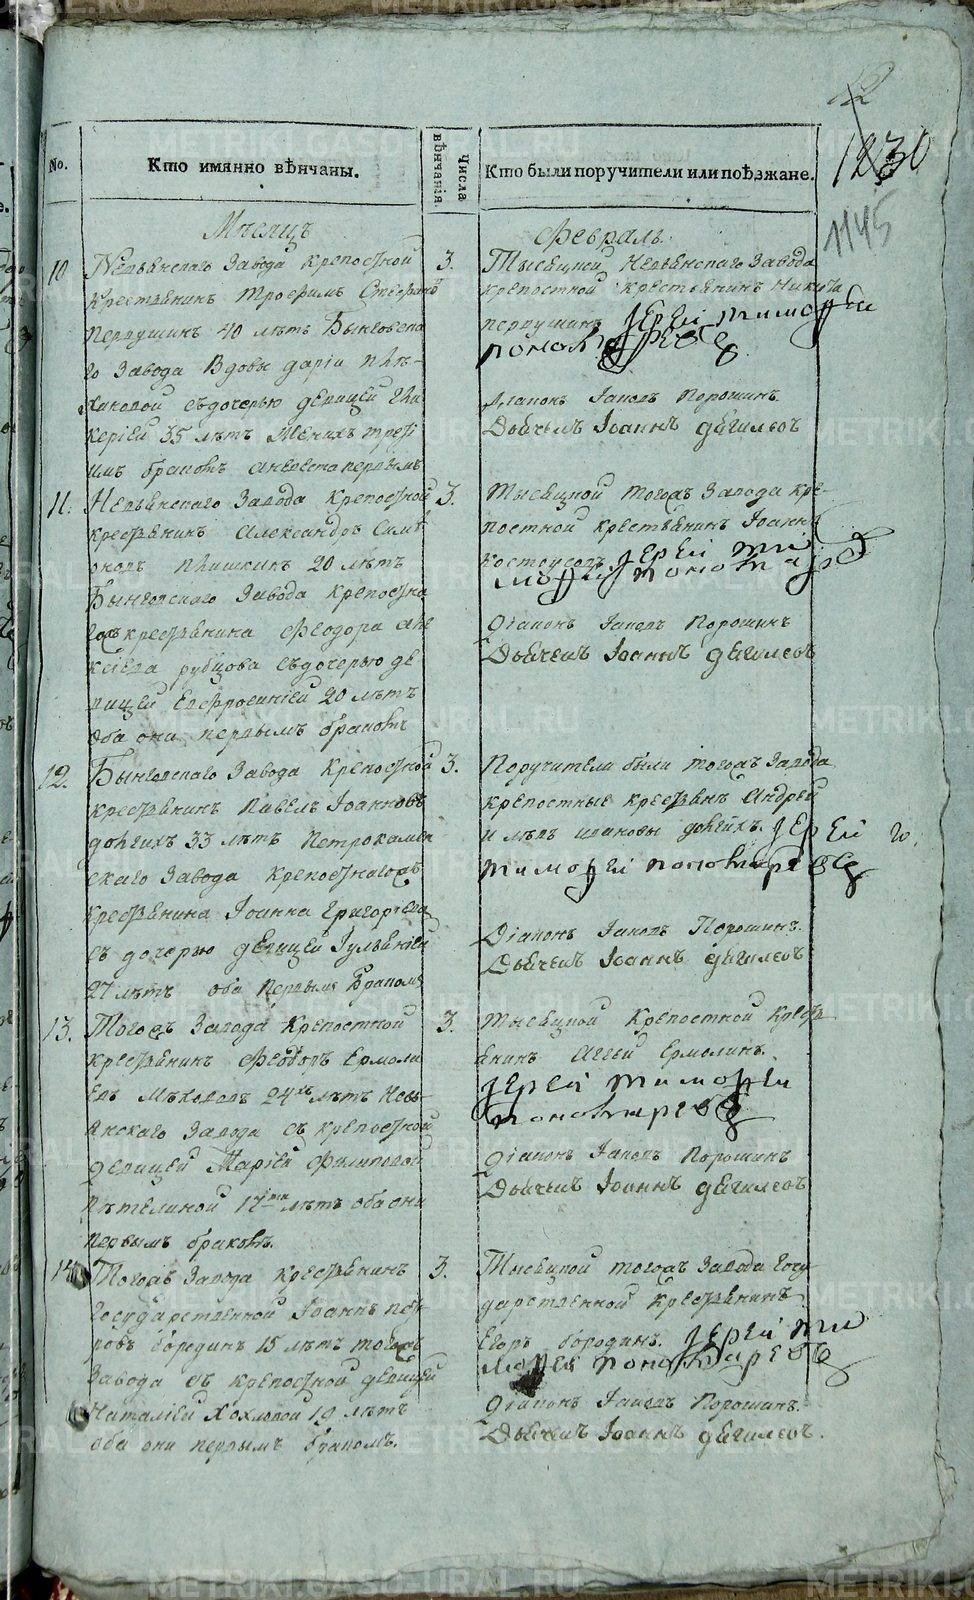 1230
1145
No.
Кто имянно вѣнчаны.
Числа вѣнчанія.
Кто были поручители или поѣзжане.
Мѣсяцъ
Февраль
10
Невьянскаго Завода крепостной
крестьянинъ Трофимъ Стефановъ
Первушинъ 40 лѣтъ Бынговска
го Завода Вдовы даріи
съ дочерью девицей
35 лѣтъ Женихъ трети
имъ бракомъ а невеста первымъ
3.
Тысяцкой Невьянскаго Завода
крепостной крестьянинъ Никита
первушинъ Іерей Тимофей
пономаревъ
Діаконъ Іаковъ Порошинъ
Дьячекъ Іоаннъ дягилевъ
11.
Невьянскаго Завода крепостной
крестьянинъ Александръ
20 лѣтъ
Бынговскаго Завода крепостна
гожъ крестьянина Феодора Але
ксіева рубцова съ дочерью де
вицей Евфросиніей 20 лѣтъ
оба они первымъ бракомъ
3.
Тысяцкой тогожъ Завода кре
постной крестьянинъ Іоаннъ
костоусовъ Іерей Ти
мофей пономаревъ
Діаконъ Іаковъ Порошинъ
Дьячекъ Іоаннъ дягилевъ
12.
Бынговскаго Завода крепостной
крестьянинъ Павелъ Іоанновъ
33 лѣтъ Петрокамен
скаго Завода крепостнагожъ
крестьянина Іоанна Григорьева
съ дочерью девицей Іульяніей
27 лѣтъ оба первымъ бракомъ
3.
Поручители были тогожъ Завода
крепостные крестьяне Андрей
и Ивановы Іерей
Тимофей пономаревъ
Діаконъ Іаковъ Порошинъ.
Дьячекъ Іоаннъ дягилевъ
13.
Тогожъ Завода крепостной
крестьянинъ Феодоръ Ермола
евъ 24хъ лѣтъ Невь
янскаго Завода съ крепостной
девицей Маріей Филиповой
Пѣтелиной 17ти лѣтъ оба они
первымъ бракомъ.
3.
Тысяцкой крепостной кресть
янинъ Аггей Ермолинъ.
Іерей Тимофей
пономаревъ
Діаконъ Іаковъ Порошинъ
Дьячекъ Іоаннъ дягилевъ
14
Тогожъ Завода крестьянинъ
государственной Іоаннъ пет
ровъ бородинъ 15 лѣтъ тогожъ
Завода съ крепостной девицей
Наталіей Хохловой 19 лѣтъ
оба они первымъ бракомъ.
3.
Тысяцкой тогожъ Завода госу
дарственной крестьянинъ
Егоръ бородинъ. Іерей Ти
мофей пономаревъ
Діаконъ Іаковъ Порошинъ.
Дьячекъ Іоаннъ дягилевъ.